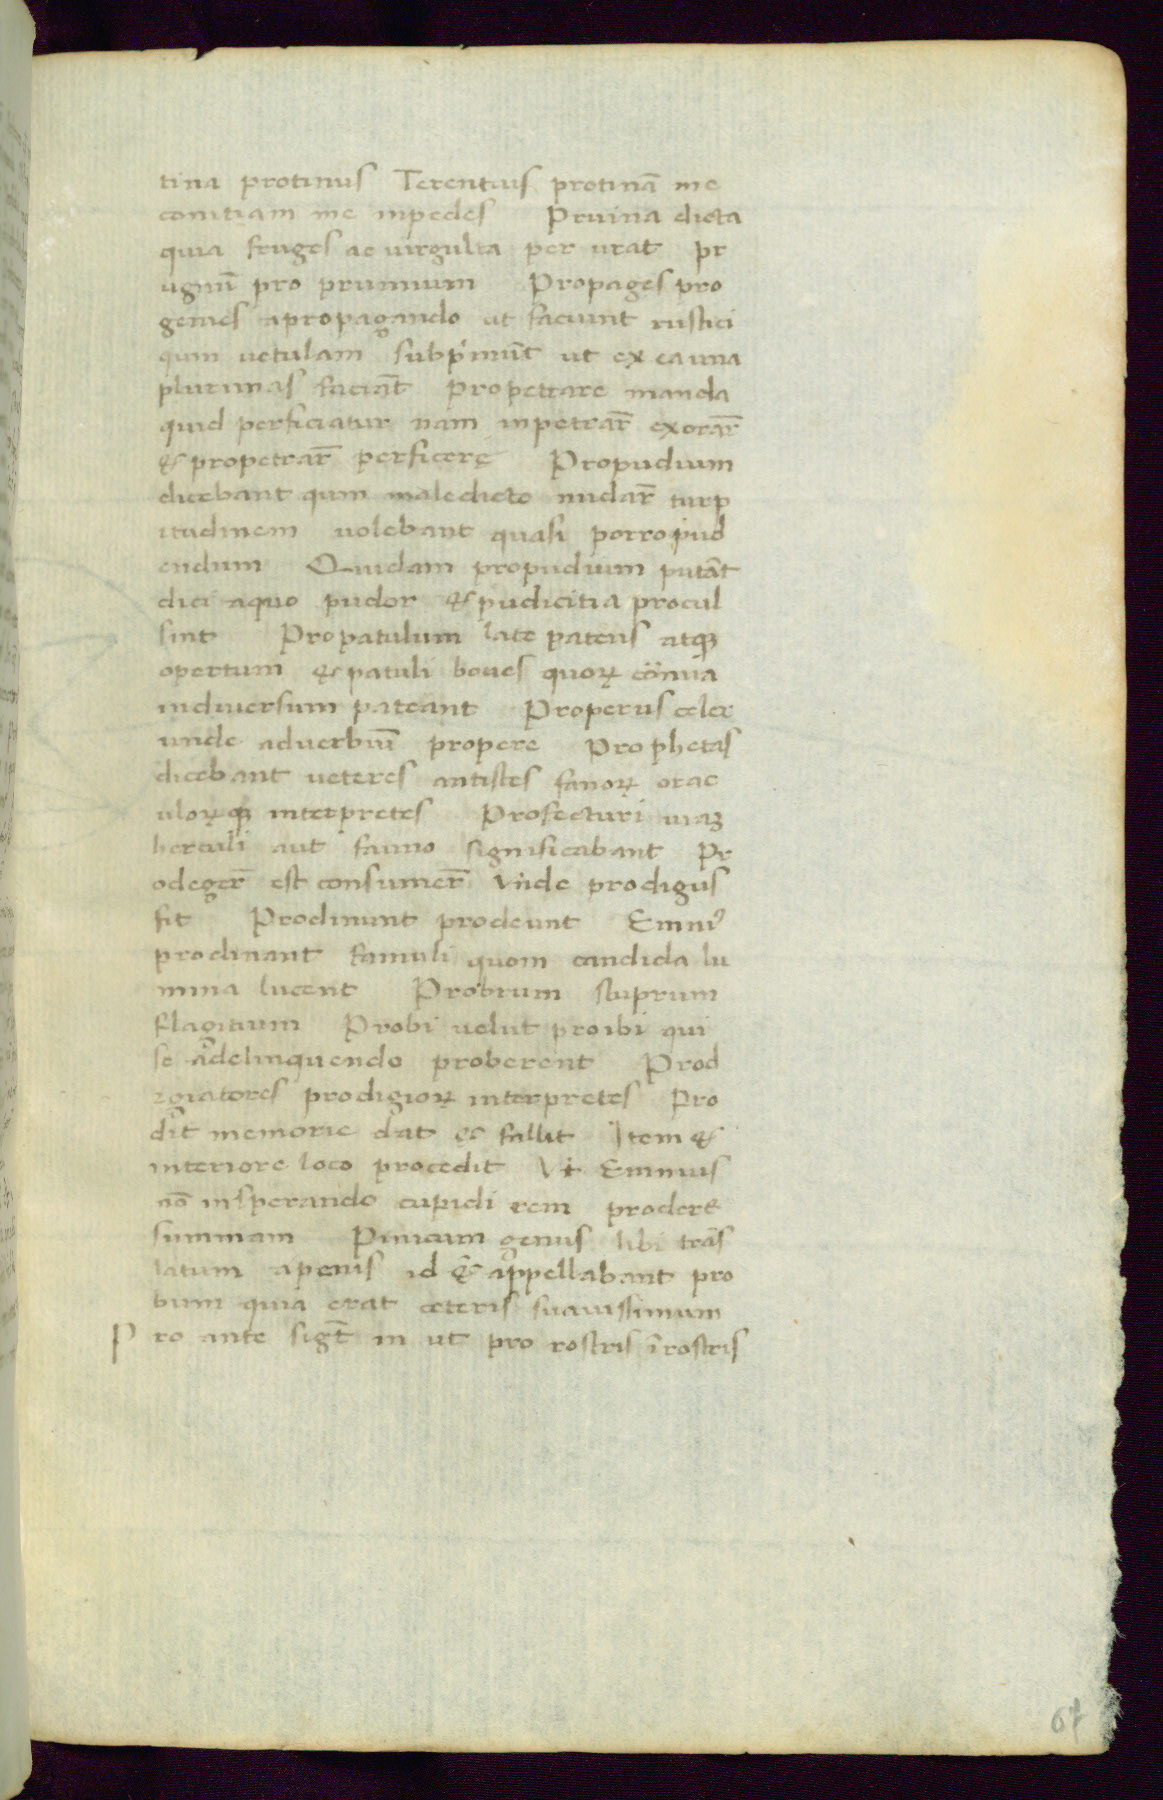 tina protinus Terentius protinā me
conitiam me inpedes Pruina dicta
quia fruges ac uirgulta per urat pr
ugnū pro prunnum Propages pro
genies apropagando ut faciunt rustici
qum uetulam subpimūt ut ex ea una
plurimas faciāt Propetrare manda
quid perficiatur nam inpetrar̄ exorar̄
& propetrar̄ perficere Propudium
dicebant qum maledicto nudar̄ turp
itudinem uolebant quasi porro pud
endum Quidam propudium putāt
dici aquo pudor & pudicitia procul
sint Propatulum late patens atqꝫ
opertum & patuli boues quoꝝ cornua
indiuersum pateant Properus celer
unde aduerbiū propere Prophetas
dicebant ueteres antistes fanoꝝ orac
uloꝝqꝫ interpretes Profecturi uiaꝫ
herculi aut fauno significabant Pr
odeger̄ est consumer̄ Vnde prodigus
fit Prodinunt prodeunt Enniꝰ
prodinant famuli quom candida lu
mina lucent Probrum stuprum
flagitium Probi uelut proibi qui
se adelinquendo proberent Prod
igiatores prodigioꝝ interpretes Pro
dit memorie dat & fallit Item &
interiore loco procedit Vt Ennius
nō insperando cupidi rem prodere
summam Pinicum genus libi trās
latum apenis id & appellabant pro
bum quia erat ceteris suauissimum
Pro ante sigt̄ in ut pro rostris ī rostris
67